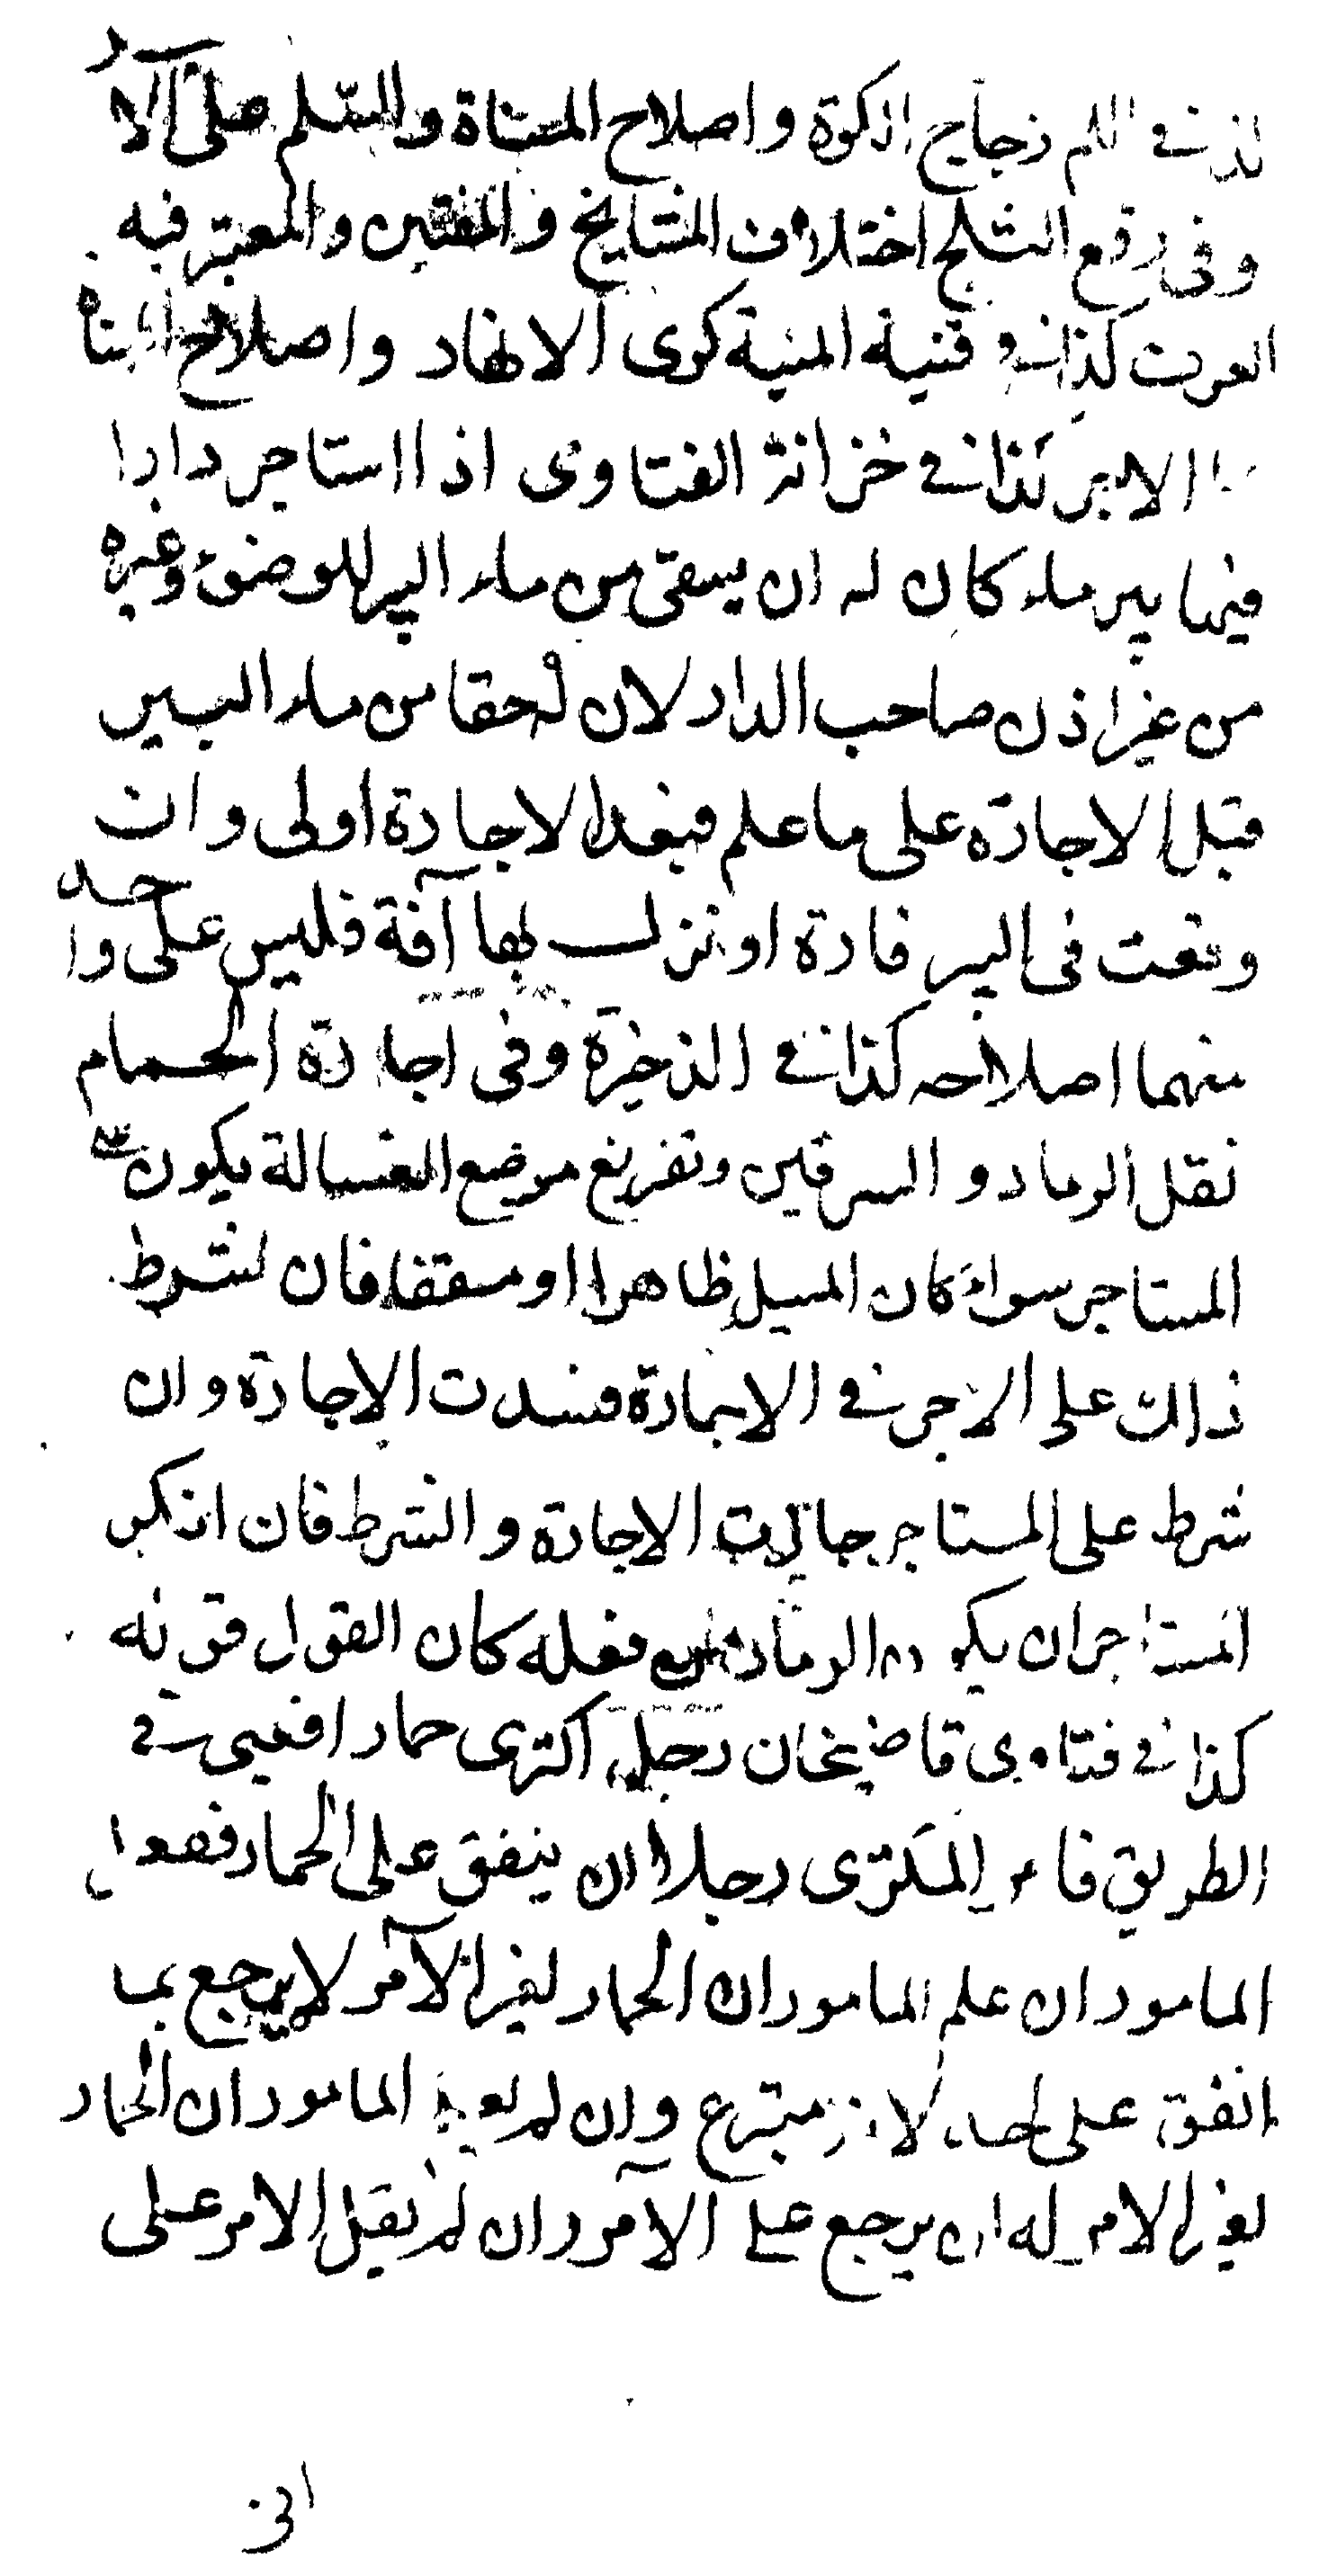 زجاج الكوة واصلاح المسناة والسلم على الآجر
وفى رفع الثلج اختلاف المشايخ والمفتين والمعتبر فيه
العرف كذا فى قنية المنية كرى الانهار واصلاح المسناة
الاجر كذا فى خزانة الفتاوى اذا استاجر دارا
فيها بير ماء كان له ان يسقى من ماء البير للوضوء وغيره
من غير اذن صاحب الدار لان له حقا من ماء البير
قبل الاجارة على ما علم فبعد الاجارة اولى وان
وقعت فى البير فارة او نزلت بها آفة فليس على واحد
منهما اصلاحه كذا فى الذخيرة وفى اجارة الحمام
نقل الرماد والسرقين وتفريغ موضع الغسالة يكون على
المستاجر سواء كان المسيل ظاهرا او مسقفا فان شرط
ذلك على الاجر فى الاجارة فسدت الاجارة وان
شرط على المستاجر جازت الاجارة والشرط فان انكر
المستاجر ان يكون الرماد من فعله كان القول قوله
كذا فى فتاوى قاضيخان رجل اكترى حمارا فعيى فى
الطريق فامر المكترى رجلا ان ينفق على الحمار ففعل
المامور ان علم المامور ان الحمار لغير الآمر لا يرجع بما
انفق على احد لانه متبرع وان لم يعلم المامور ان الحمار
لغير الامر له ان يرجع على الآمر وان لم يقل الامر على
انى